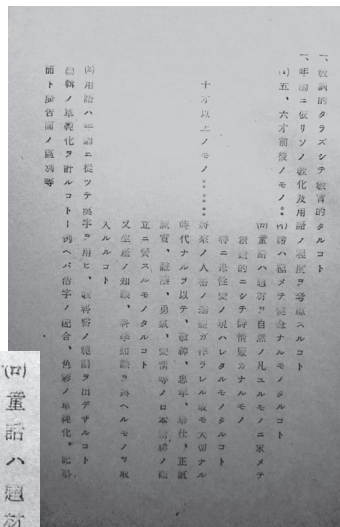 一、教訓的タラズシテ教育的タルコト
一、年齢ニ依リソノ教化及用語ノ程度ヲ考慮スルコト
(1)五、六才前後ノモノ
(イ) 絵ハ極メテ健全ナルモノタルコト
(ロ) 童話ハ題材ヲ自然ノ凡ユルモノニ求メテ
創造的ニシテ詩情豊カナルモノ
特ニ母性愛ノ現ハレタルモノタルコト
十才以上ノモノ 将来ノ人格ノ基礎ガ作ラレル最モ大切ナル
時代ナルヲ以テ、敬神、忠孝、奉仕、正直
誠実、謙譲、勇気、愛情等ノ日本精神ノ確
立ニ資スルモノタルコト
又生産ノ知識、科学知識ヲ与ヘルモノヲ取
入ルルコト
(2)用語ハ年齢ニ従ツテ漢字ヲ用ヒ、教科書ノ範囲ヲ出デザルコト
編輯ノ単純化ヲ計ルコト－例ヘバ活字ノ配合、色彩ノ単純化、記事
面ト広告面ノ区別等
(ロ) 童話ハ題材